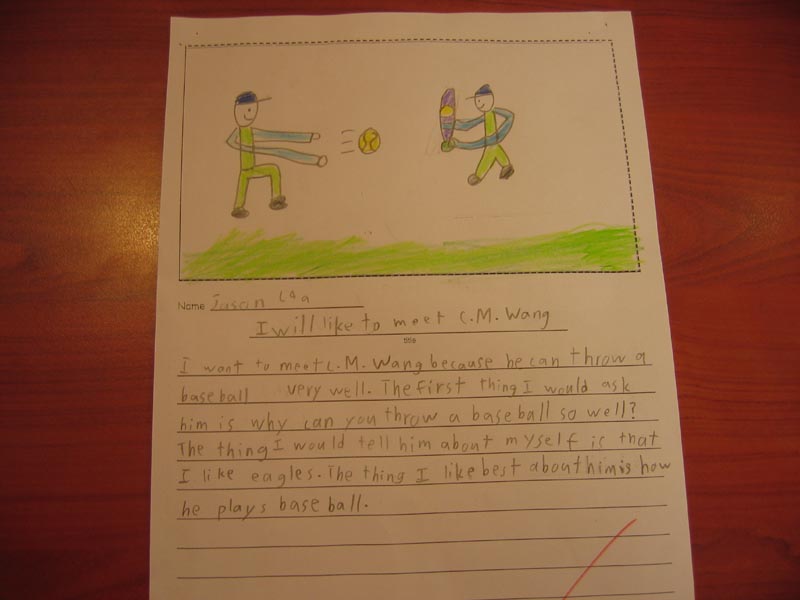 Name Jasan
I will like to meet C.M. Wang
title
I want to meet C.M. Wang because he can throw a
baseball very well. The first thing I would ask
him is why can you throw a baseball so well?
The thing I would tell him about myself is that
I like eagles. The thing I like best about him is how
he plays baseball.